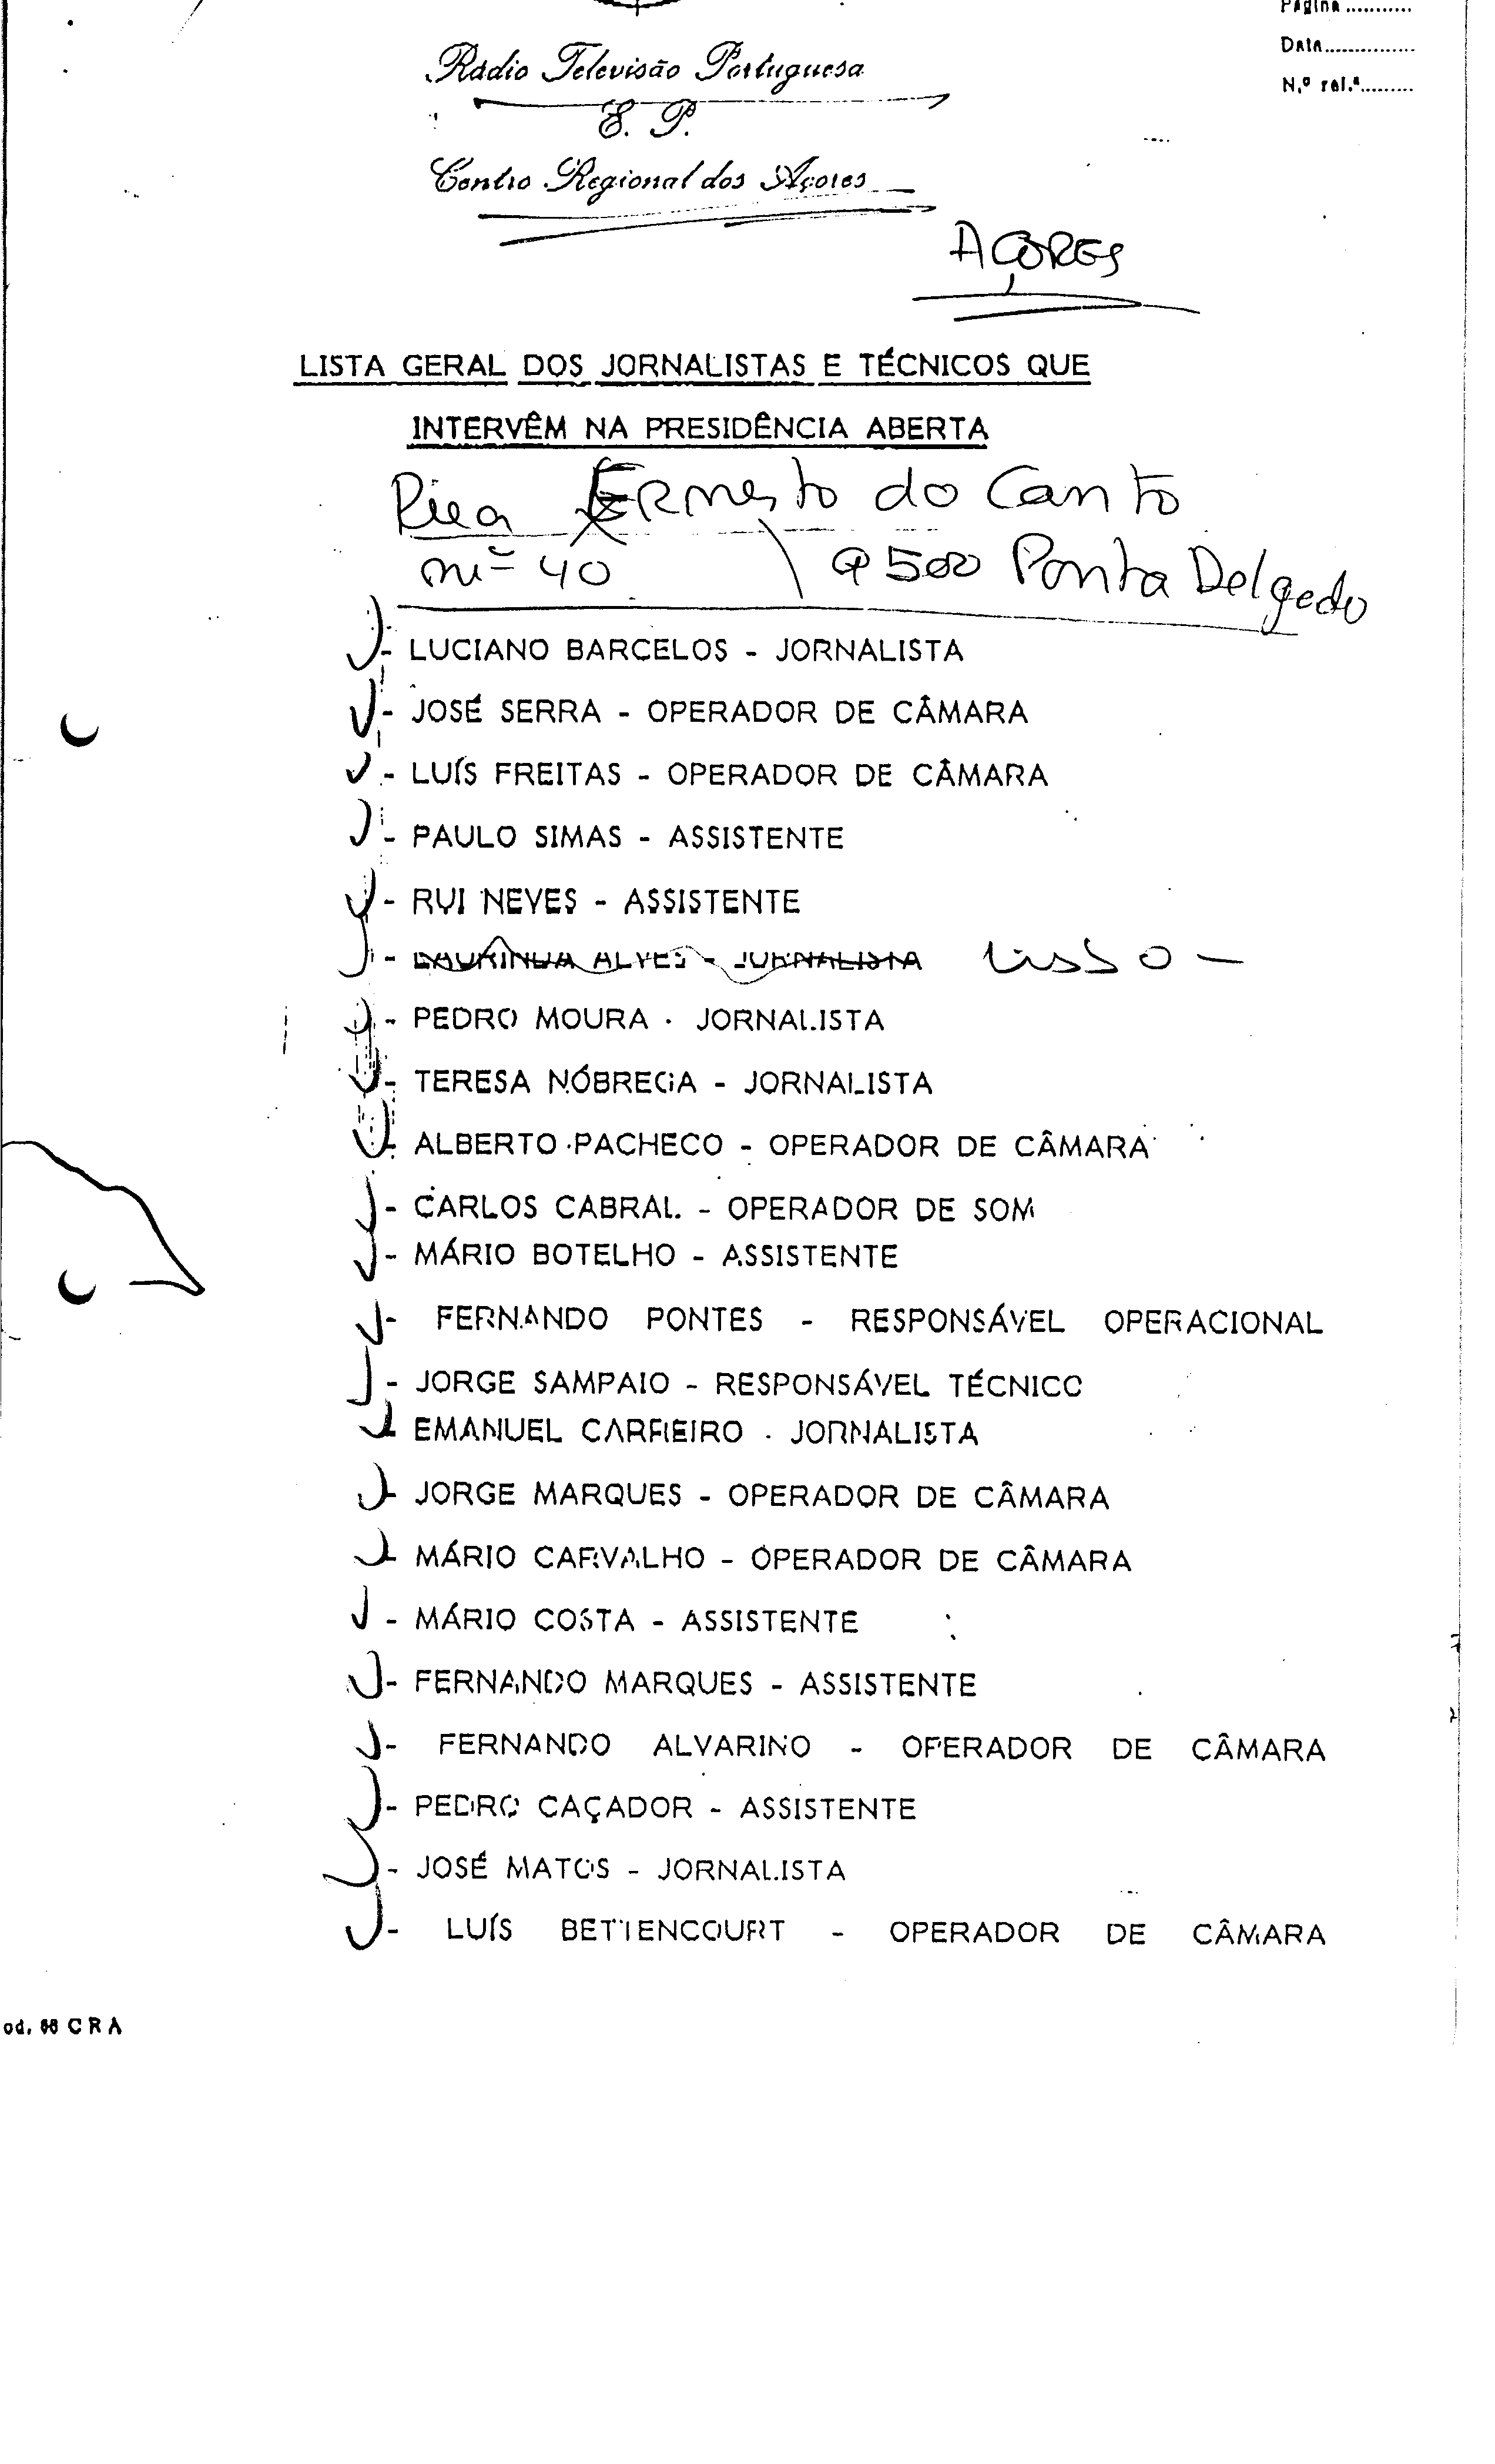 Página ...........
Data...............
N.º ref.ª.........
Rádio Televisão Portuguesa
E. P.
Centro Regional dos Açores
AÇORES
LISTA GERAL DOS JORNALISTAS E TÉCNICOS QUE
INTERVÊM NA PRESIDÊNCIA ABERTA
Rua Ernesto do Canto
nº 40 9500 Ponta Delgada
- LUCIANO BARCELOS - JORNALISTA
- JOSÉ SERRA - OPERADOR DE CÂMARA
- LUÍS FREITAS - OPERADOR DE CÂMARA
- PAULO SIMAS - ASSISTENTE
- RUI NEVES - ASSISTENTE
- LAURINDA ALVES - JORNALISTA
- PEDRO MOURA - JORNALISTA
- TERESA NÓBREGA - JORNALISTA
- ALBERTO PACHECO - OPERADOR DE CÂMARA
- CARLOS CABRAL - OPERADOR DE SOM
- MÁRIO BOTELHO - ASSISTENTE
- FERNANDO PONTES - RESPONSÁVEL OPERACIONAL
- JORGE SAMPAIO - RESPONSÁVEL TÉCNICO
- EMANUEL CARREIRO - JORNALISTA
- JORGE MARQUES - OPERADOR DE CÂMARA
- MÁRIO CARVALHO - OPERADOR DE CÂMARA
- MÁRIO COSTA - ASSISTENTE
- FERNANDO MARQUES - ASSISTENTE
- FERNANDO ALVARINO - OPERADOR DE CÂMARA
- PEDRO CAÇADOR - ASSISTENTE
- JOSÉ MATOS - JORNALISTA
- LUÍS BETTENCOURT - OPERADOR DE CÂMARA
od. 66 C R A